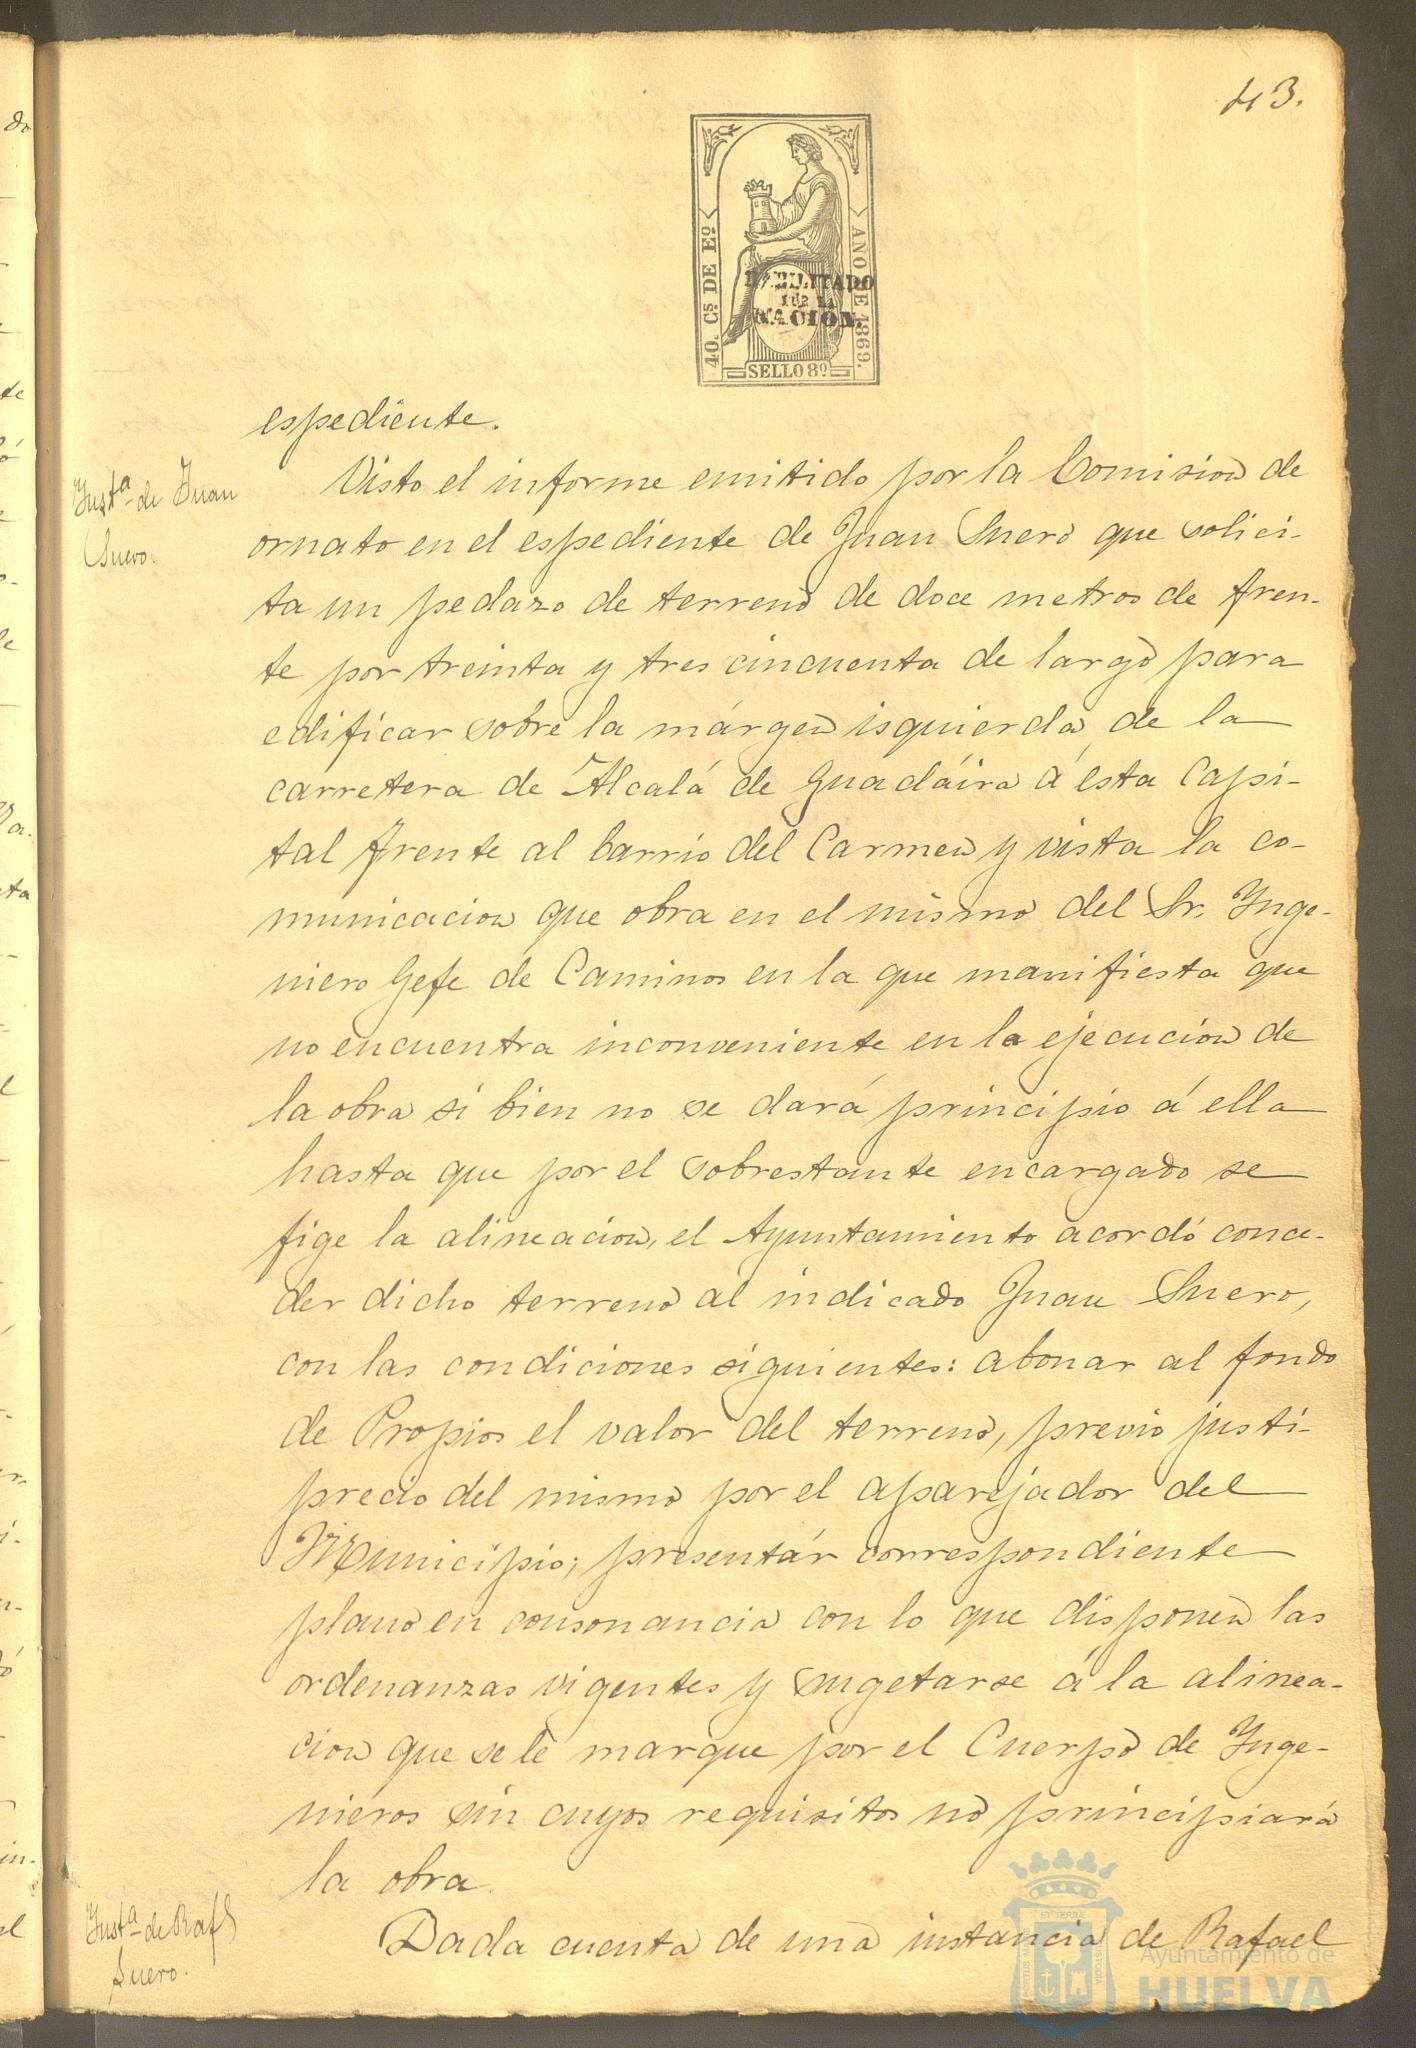 43.
40. Cs DE Eº
AÑO DE 1869.
HABILITADO
POR LA
NACION.
SELLO 8º
espediente.
Insta de Juan
Suero.
Visto el informe emitido por la Comision de
ornato en el espediente de Juan Suero que solici-
ta un pedazo de terreno de doce metros de fren-
te por treinta y tres cincuenta de largo para
edificar sobre la márgen isquierda de la
carretera de Alcalá de Guadáira á esta Capi-
tal frente al barrio del Carmen y vista la co-
municacion que obra en el mismo del Sr. Inge-
niero Gefe de Caminos en la que manifiesta que
no encuentra inconveniente en la ejecucion de
la obra si bien no se dará principio á ella
hasta que por el sobrestante encargado se
fige la alineacion, el Ayuntamiento acordó conce-
der dicho terreno al indicado Juan Suero,
con las condiciones siguientes: abonar al fondo
de Propios el valor del terreno, previo justi-
precio del mismo por el aparejador del
Municipio; presentár correspondiente
plano en consonancia con lo que disponen las
ordenanzas vigentes y sugetarse á la alinea-
cion que se le marque por el Cuerpo de Inge-
nieros sin cuyos requisitos no principiará
la obra.
Insta de Rafl
Suero.
Dada cuenta de una instancia de Rafael
Ayuntamiento de
HUELVA